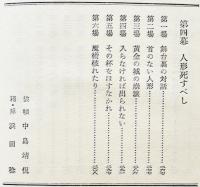 第四幕　人形死すべし
第一場　舞台裏の対話
第二場　首のない人形
第三場　黄金の城の崩壊
第四場　入らなければ出られない
第五場　その杯をほすなかれ
第六場　魔術破れたり
装幀　中島靖侃
浜田稔